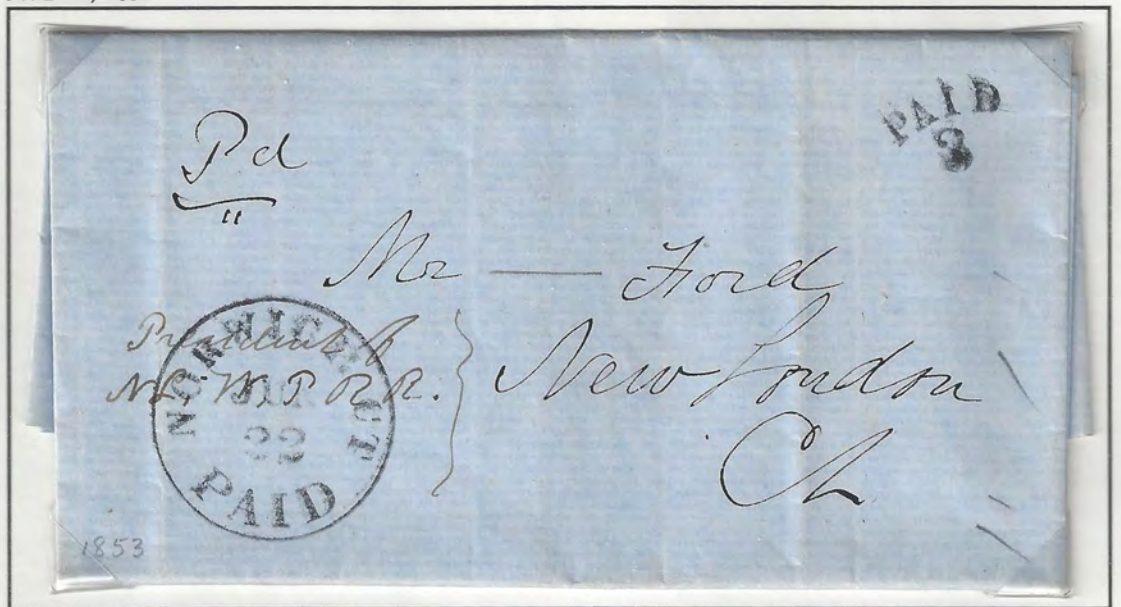 PAID
3
Pd
"
Mr — Ford
President of
N.L. W. P R R. } New London
Ct
NORWICH CT
22
PAID
1853